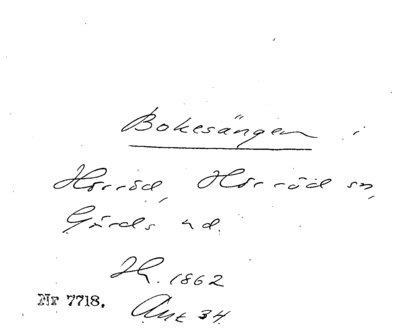 Bokesängen i
Hörröd, Hörröd sn,
Gärds hd.
H. 1862
Nr 7718. Akt 34.